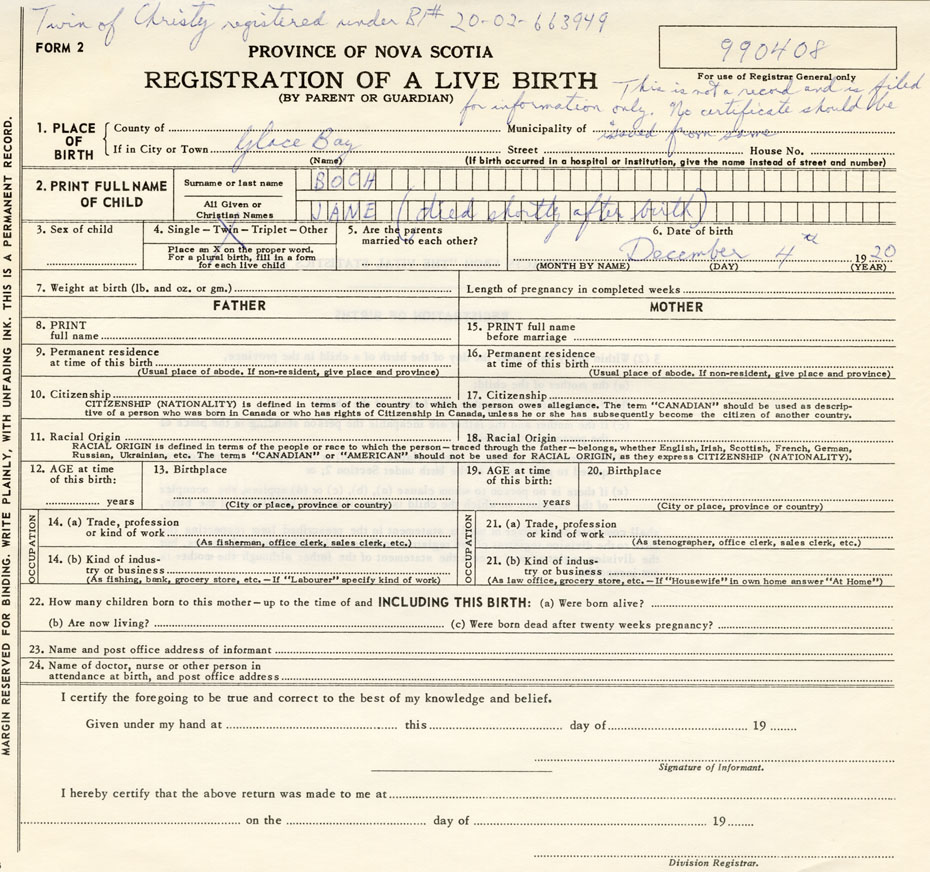 Twin of Christy registered under B1# 20-02-663949
FORM 2
PROVINCE OF NOVA SCOTIA
990408
REGISTRATION OF A LIVE BIRTH
For use of Registrar General only
(BY PARENT OR GUARDIAN)
This is not a record and is filed
for information only. No certificate should be
issued from same
1. PLACE OF BIRTH
County of
Municipality of
If in City or Town Glace Bay
Street
House No.
(Name)
(If birth occurred in a hospital or institution, give the name instead of street and number)
2. PRINT FULL NAME OF CHILD
Surname or last name
BOCH
All Given or Christian Names
JANE (died shortly after birth)
3. Sex of child
4. Single—Twin—Triplet—Other
X
Place an X on the proper word.
For a plural birth, fill in a form
for each live child
5. Are the parents
married to each other?
6. Date of birth
December 4th 1920
(MONTH BY NAME) (DAY) (YEAR)
7. Weight at birth (lb. and oz. or gm.)
Length of pregnancy in completed weeks
FATHER
MOTHER
8. PRINT
full name
15. PRINT full name
before marriage
9. Permanent residence
at time of this birth
(Usual place of abode. If non-resident, give place and province)
16. Permanent residence
at time of this birth
(Usual place of abode. If non-resident, give place and province)
10. Citizenship
17. Citizenship
CITIZENSHIP (NATIONALITY) is defined in terms of the country to which the person owes allegiance. The term "CANADIAN" should be used as descrip-
tive of a person who was born in Canada or who has rights of Citizenship in Canada, unless he or she has subsequently become the citizen of another country.
11. Racial Origin
18. Racial Origin
RACIAL ORIGIN is defined in terms of the people or race to which the person—traced through the father—belongs, whether English, Irish, Scottish, French, German,
Russian, Ukrainian, etc. The terms "CANADIAN" or "AMERICAN" should not be used for RACIAL ORIGIN, as they express CITIZENSHIP (NATIONALITY).
12. AGE at time
of this birth:
years
13. Birthplace
(City or place, province or country)
19. AGE at time
of this birth:
years
20. Birthplace
(City or place, province or country)
OCCUPATION
14. (a) Trade, profession
or kind of work
(As fisherman, office clerk, sales clerk, etc.)
14. (b) Kind of indus-
try or business
(As fishing, bank, grocery store, etc.—If "Labourer" specify kind of work)
OCCUPATION
21. (a) Trade, profession
or kind of work
(As stenographer, office clerk, sales clerk, etc.)
21. (b) Kind of indus-
try or business
(As law office, grocery store, etc.—If "Housewife" in own home answer "At Home")
22. How many children born to this mother—up to the time of and INCLUDING THIS BIRTH: (a) Were born alive?
(b) Are now living?
(c) Were born dead after twenty weeks pregnancy?
23. Name and post office address of informant
24. Name of doctor, nurse or other person in
attendance at birth, and post office address
I certify the foregoing to be true and correct to the best of my knowledge and belief.
Given under my hand at this day of 19
Signature of Informant.
I hereby certify that the above return was made to me at
on the day of 19
Division Registrar.
MARGIN RESERVED FOR BINDING. WRITE PLAINLY, WITH UNFADING INK. THIS IS A PERMANENT RECORD.